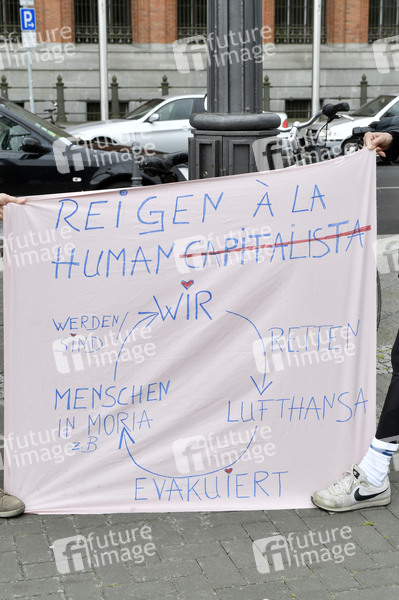 P
REIGEN À LA
HUMAN CAPITALISTA
WIR
RETTEN
LUFTHANSA
EVAKUIERT
MENSCHEN
IN MORIA
z.B
WERDEN/
SIND
future image